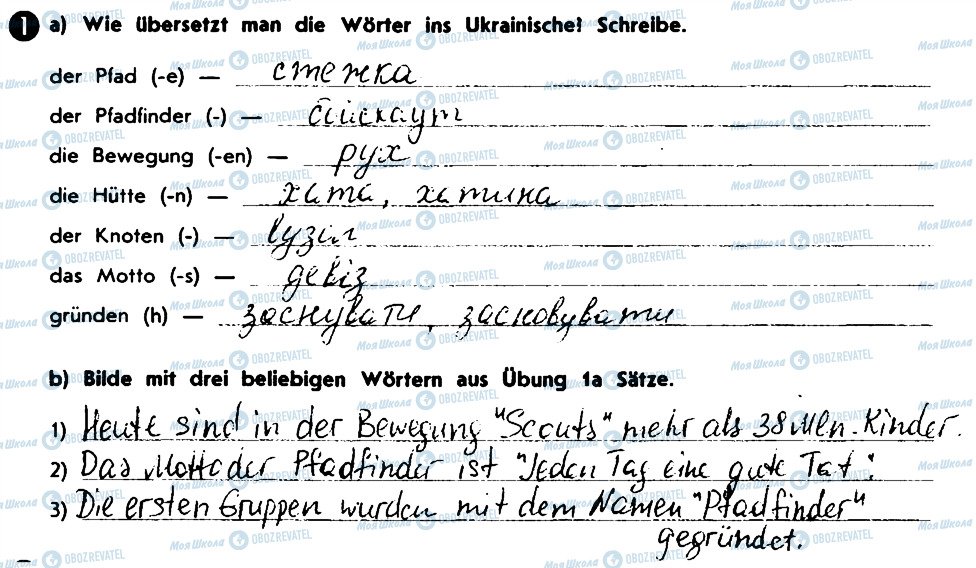 1 a) Wie übersetzt man die Wörter ins Ukrainische? Schreibe.
der Pfad (-e) — стежка
der Pfadfinder (-) — бойскаут
die Bewegung (-en) — рух
die Hütte (-n) — хата, хатина
der Knoten (-) — вузол
das Motto (-s) — девіз
gründen (h) — заснувати, засновувати
b) Bilde mit drei beliebigen Wörtern aus Übung 1a Sätze.
1) Heute sind in der Bewegung "Scouts" mehr als 38 Mln. Kinder.
2) Das Motto der Pfadfinder ist "Jeden Tag eine gute Tat".
3) Die ersten Gruppen wurden mit dem Namen "Pfadfinder"
gegründet.